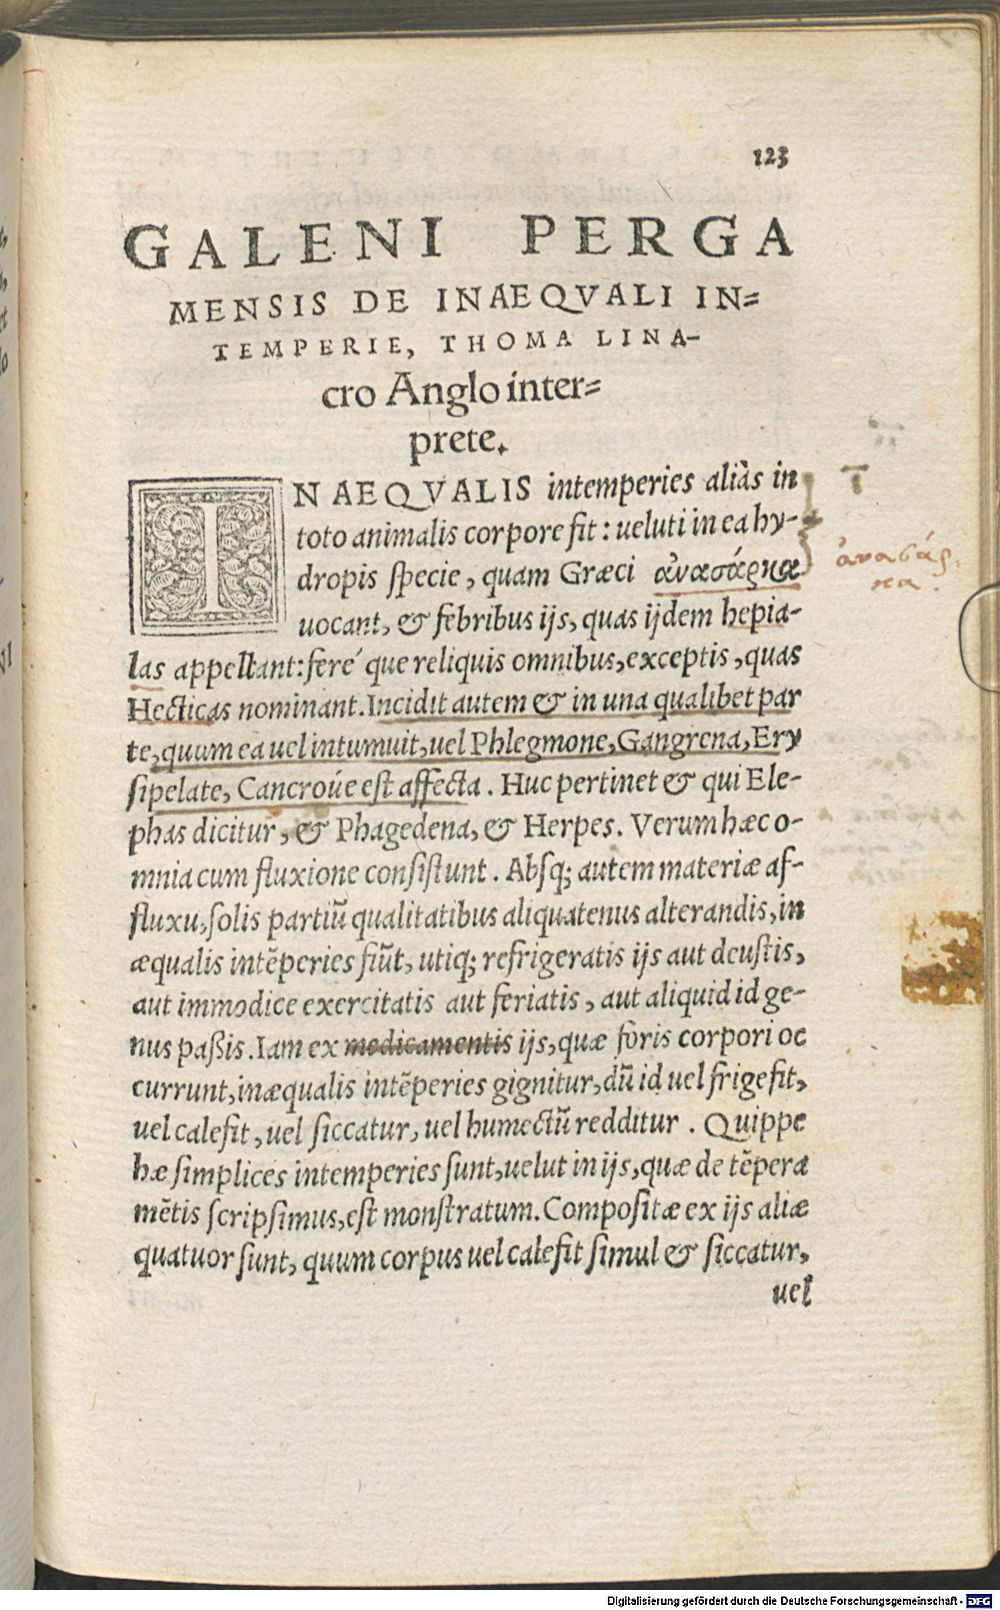 123
GALENI PERGA
MENSIS DE INAEQVALI IN=
TEMPERIE, THOMA LINA-
cro Anglo inter=
prete.
INAEQVALIS intemperies aliàs in
toto animalis corpore fit : ueluti in ea hy-
dropis specie, quam Græci ἀνασάρκα
uocant, & febribus ijs, quas ijdem hepia-
las appellant: feré que reliquis omnibus, exceptis, quas
Hecticas nominant. Incidit autem & in una qualibet par
te, quum ea uel intumuit, uel Phlegmone, Gangrena, Ery
sipelate, Cancroúe est affecta. Huc pertinet & qui Ele-
phas dicitur, & Phagedena, & Herpes. Verum hæc o-
mnia cum fluxione consistunt. Absq; autem materiæ af-
fluxu, solis partiũ qualitatibus aliquatenus alterandis, in
æqualis intẽperies fiũt, utiq; refrigeratis ijs aut deustis,
aut immodice exercitatis aut feriatis, aut aliquid id ge-
nus paßis. Iam ex medicamentis ijs, quæ foris corpori oc
currunt, inæqualis intẽperies gignitur, dũ id uel frigefit,
uel calefit, uel siccatur, uel humectũ redditur. Quippe
hæ simplices intemperies sunt, uelut in ijs, quæ de tẽpera
mẽtis scripsimus, est monstratum. Compositæ ex ijs aliæ
quatuor sunt, quum corpus uel calefit simul & siccatur,
uel
ἀνασάρ
κα.
Digitalisierung gefördert durch die Deutsche Forschungsgemeinschaft - DFG